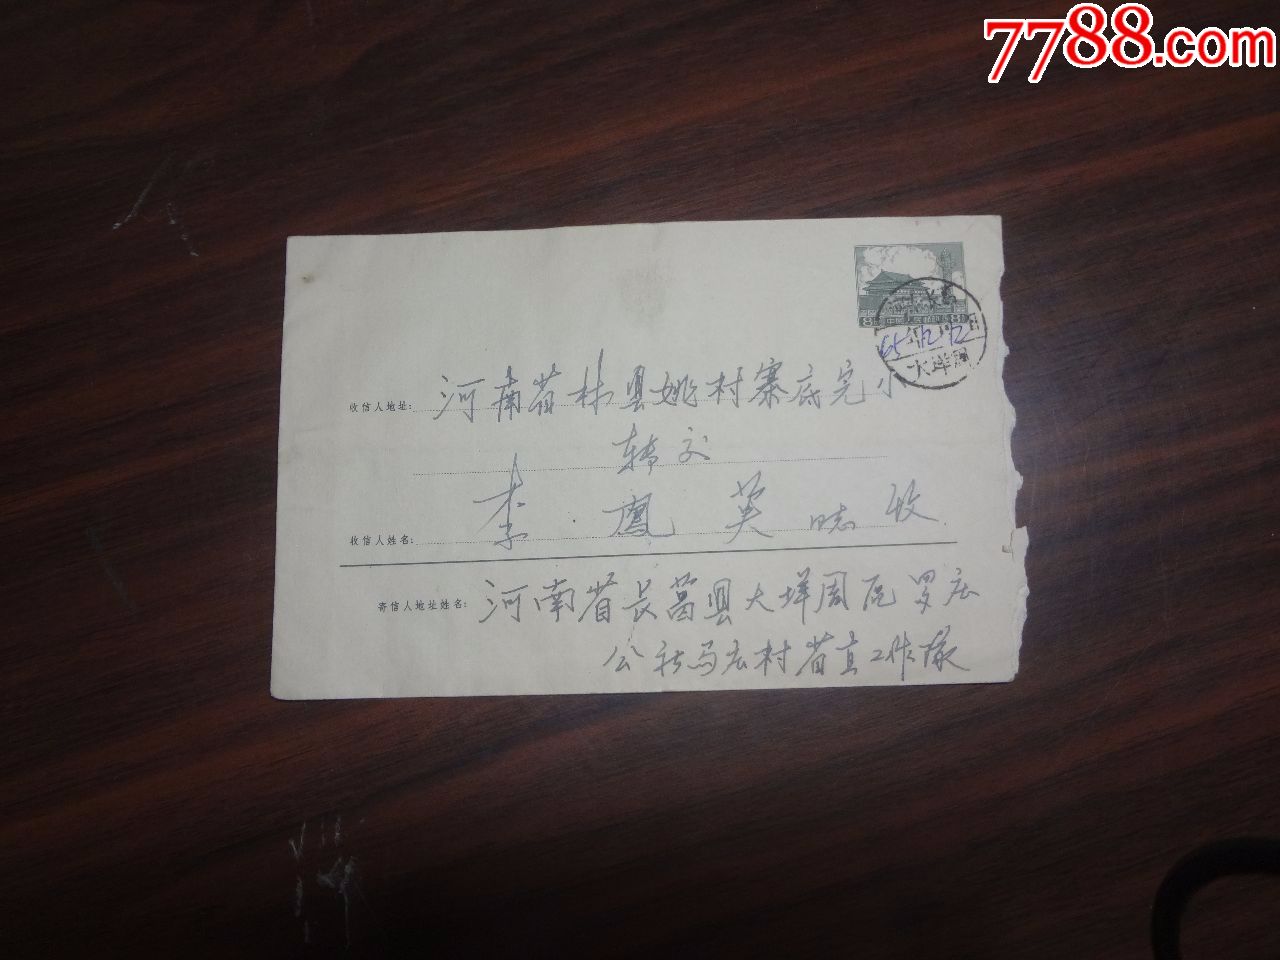 7788.com
8 中国人民邮政 8
长葛
65.12.12
大墠周
收信人地址: 河南省林县姚村寨底完小
转交
收信人姓名: 李凤英 同志 收
寄信人地址姓名: 河南省长葛县大墠周区罗庄
公社马庄村省直工作队